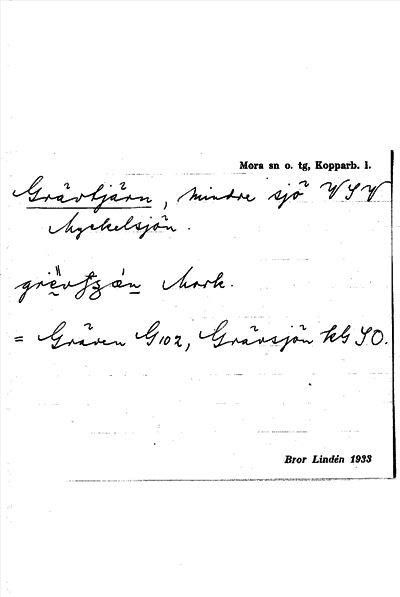 Mora sn o. tg, Kopparb. l.
Grävtjärn, mindre sjö VSV
Nyckelsjön.
Mork.
= Gräven G102, Grävsjön kG SO.
Bror Lindén 1933